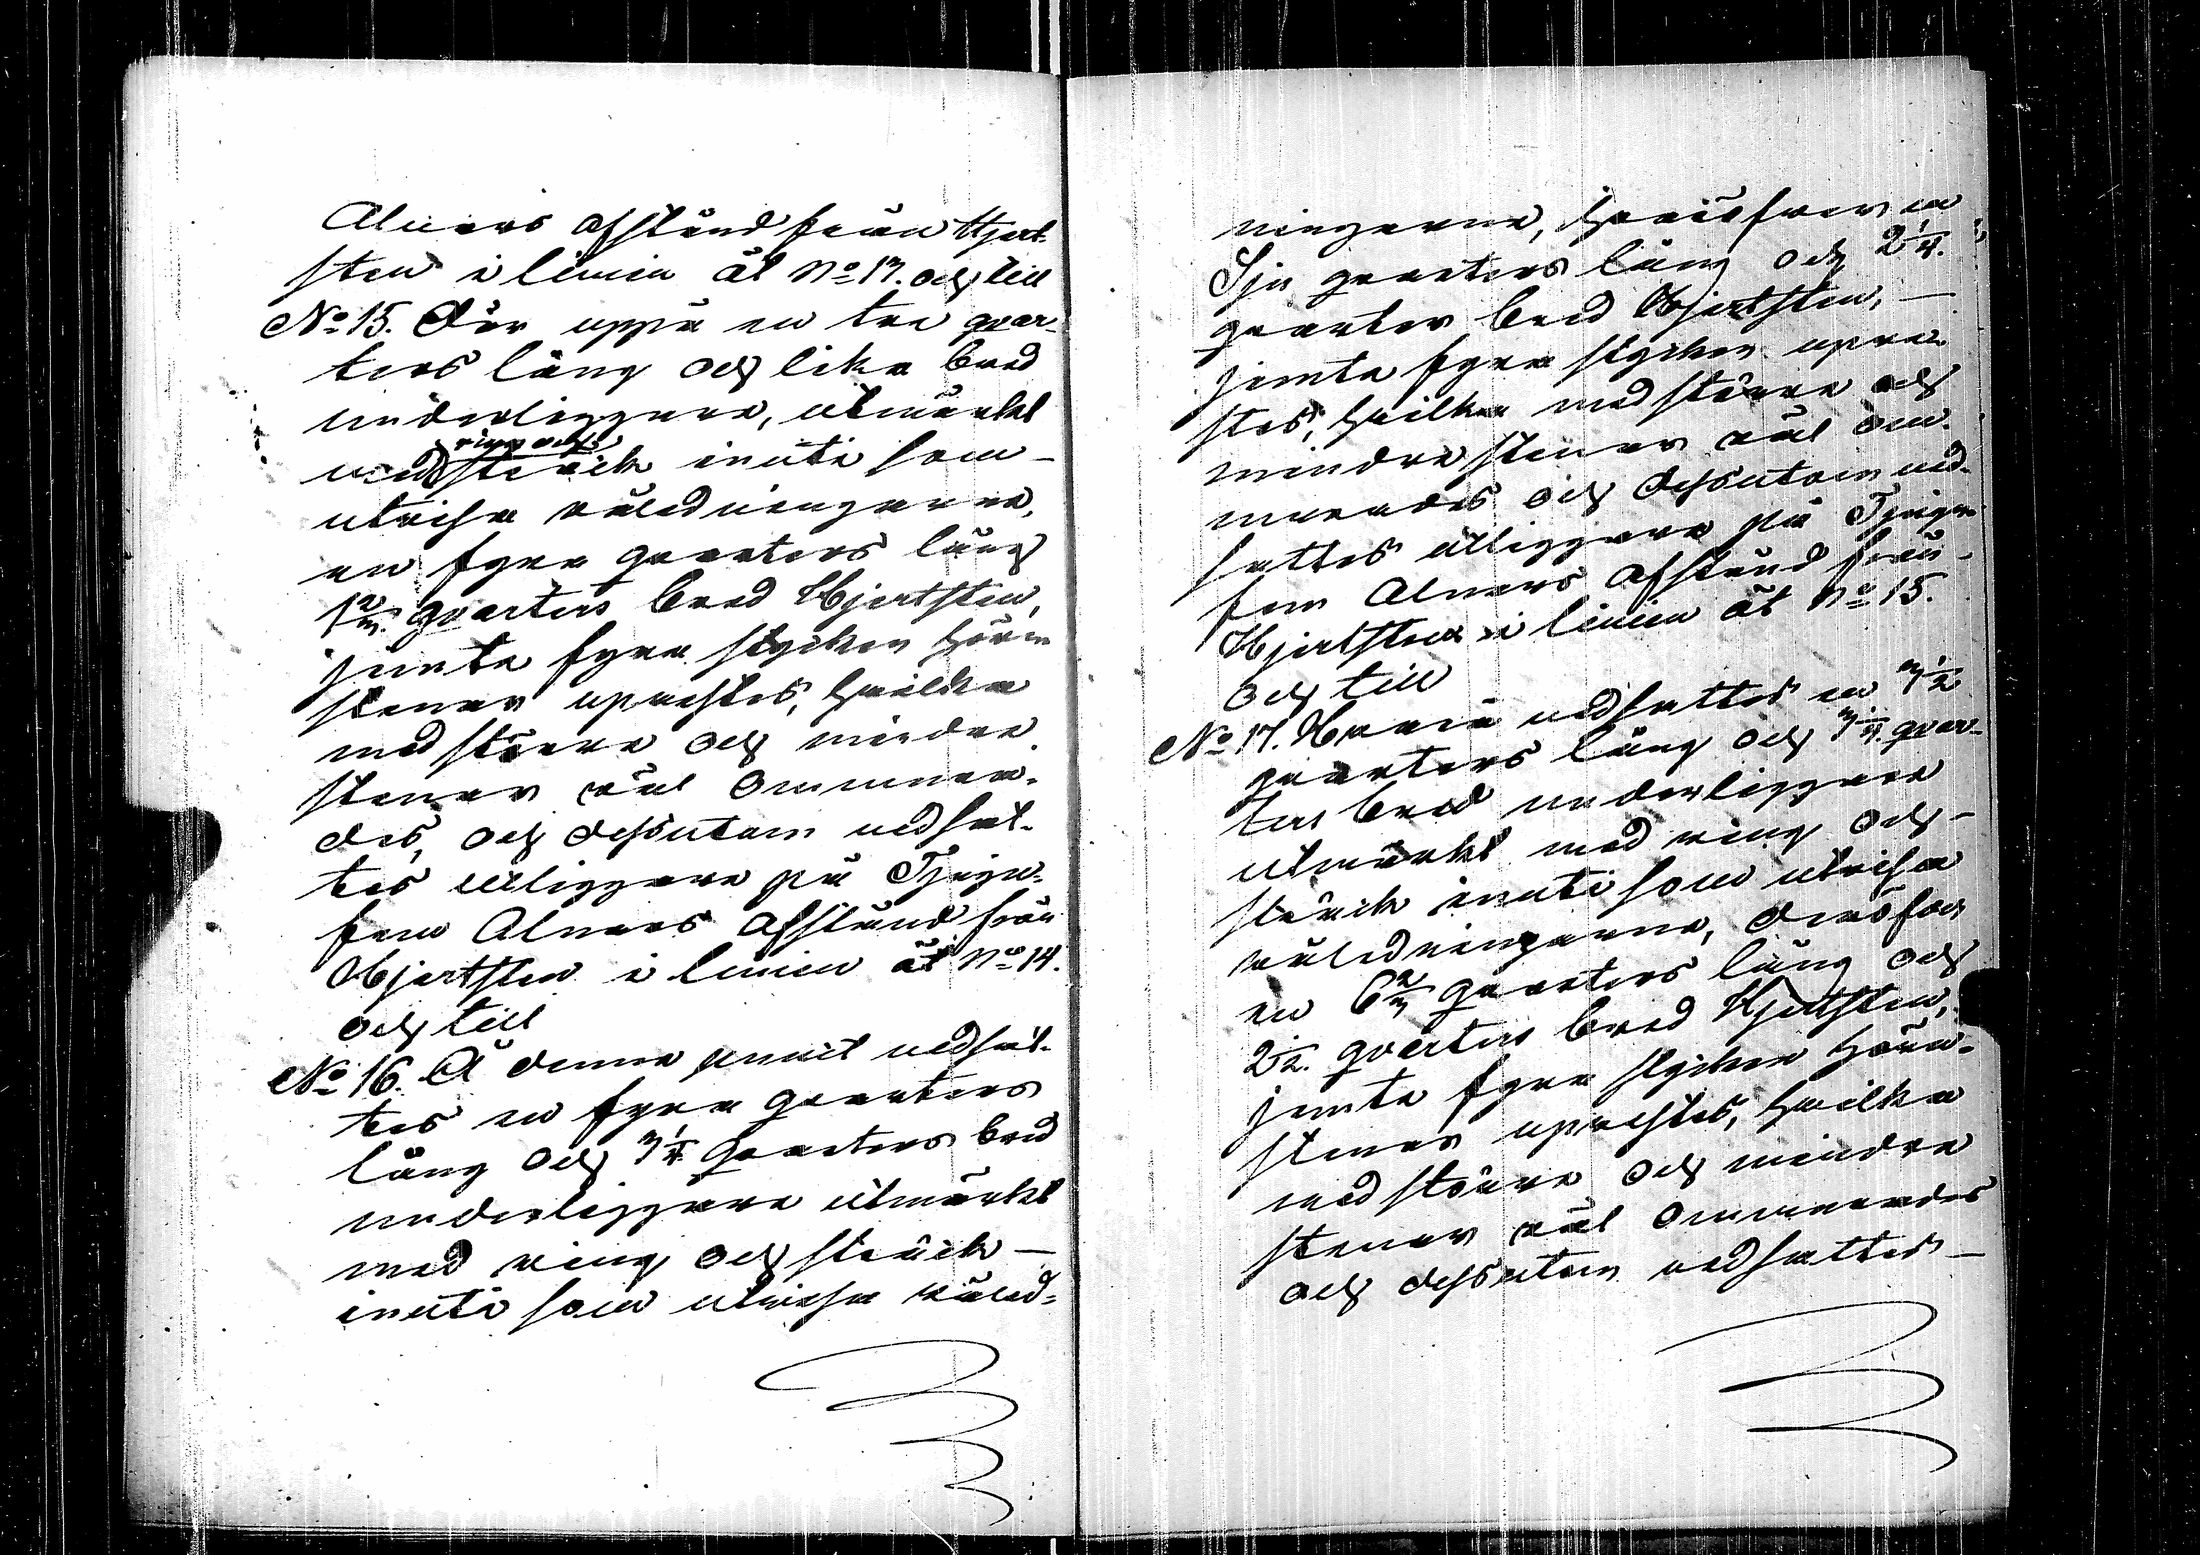 Alnars afstånd från Hjert-
sten i linien åt No 13. och till
No 15. Där uppå en tre qvar-
ters lång och lika bred
underliggare, utmärkt
med ring och streck inuti som
utvisa väledningarna,
en fyra qvarters lång
1 2/3. qvarters bred Hjertsten,
jemte fyra stycken hörn
stenar uprestes, hvilka
med större och mindre
stenar väl ommura-
des, och dessutom nedsat-
tes utliggare på Tjugu-
fem Alnars afstånd från
Hjertsten i linien åt No 14.
och till
No 16. Å denna punct nedsat-
tes en fyra qvarters
lång och 3 1/4 qvarters bred
underliggare utmärkt
med ring och streck
inuti som utvisa väled-
ningarna, hvaröfver en
Sju qvarters lång och 2 1/4.
qvarter bred Hjertsten,
jemte fyra stycken upre-
stes, hvilka med större och
mindre stenar väl om-
murades och dessutom ned-
sattes utliggare på Tjugu-
fem Alnars afstånd från
Hjertsten i linien åt No 15.
och till
No 17. Hvarå nedsattes en 3 1/2
qvarters lång och 3 1/4. qvar-
ters bred underliggare
utmärkt med ring och
streck inuti som utvisa
väledningarna, deröfver
en 6 2/3 qvarters lång och
2 1/2. qvarters bred Hjertsten,
jemte fyra stycken hörn-
stenar uprestes, hvilka
med större och mindre
stenar väl ommurades
och dessutom nedsattes